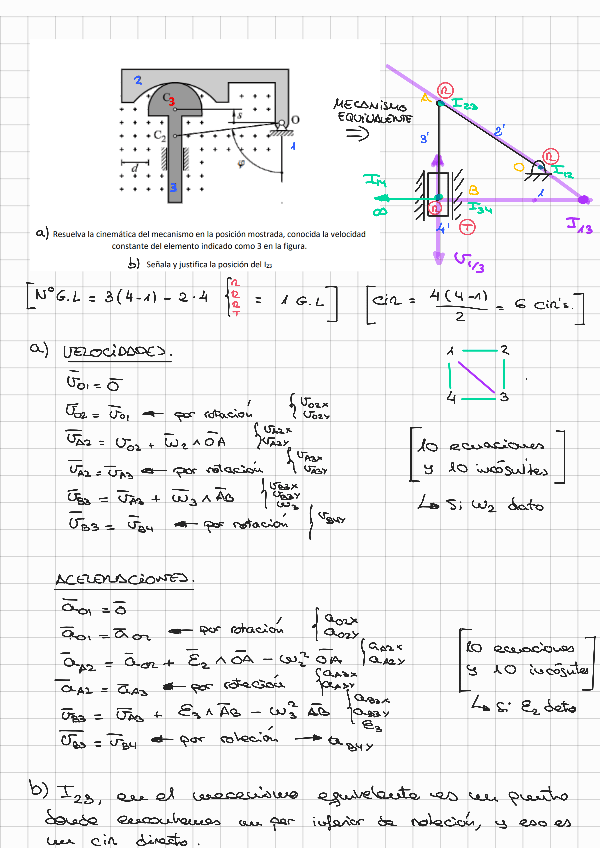 2
C₃
3
C₂
s
O
1
d
φ
3
MECANISMO
EQUIVALENTE
⇒
A
R
I₂₃
3'
2'
R
O
I₁₂
I₁₄
∞
B
R
I₃₄
1
I₁₃
4'
T
V₁/₃
a) Resuelva la cinemática del mecanismo en la posición mostrada, conocida la velocidad
constante del elemento indicado como 3 en la figura.
b) Señala y justifica la posición del I₂₃
[Nº G.L = 3(4-1) - 2·4 { R R R T = 1 G.L] [cir = 4(4-1)/2 = 6 cir's.]
a) VELOCIDADES.
1 2
4 3
v̄₀₁ = 0̄
v̄₀₂ = v̄₀₁ ← por rotación { v₀₂ₓ v₀₂y
v̄A2 = v₀₂ + ω̄₂ ∧ ŌA { vA2x vA2y
v̄A2 = v̄A3 ← por rotación { vA3x vA3y
v̄B3 = v̄A3 + ω̄₃ ∧ ĀB { vB3x vB3y ω₃
v̄B3 = v̄B4 ← por rotación { vB4y
[10 ecuaciones
y 10 incógnitas]
↳ Si ω₂ dato
ACELERACIONES.
ā₀₁ = 0̄
ā₀₁ = ā₀₂ ← por rotación { a₀₂ₓ a₀₂y
āA2 = ā₀₂ + ε̄₂ ∧ ŌA - ω₂² ŌA { aA2x aA2y
āA2 = āA3 ← por rotación { aA3x aA3y
v̄B3 = v̄A3 + ε̄₃ ∧ ĀB - ω₃² ĀB { aB3x aB3y ε₃
v̄B3 = v̄B4 ← por rotación → aB4y
[10 ecuaciones
y 10 incógnitas]
↳ si ε₂ dato
b) I₂₃, en el mecanismo equivalente es un punto
donde encontramos un par inferior de rotación, y eso es
un cir directo.